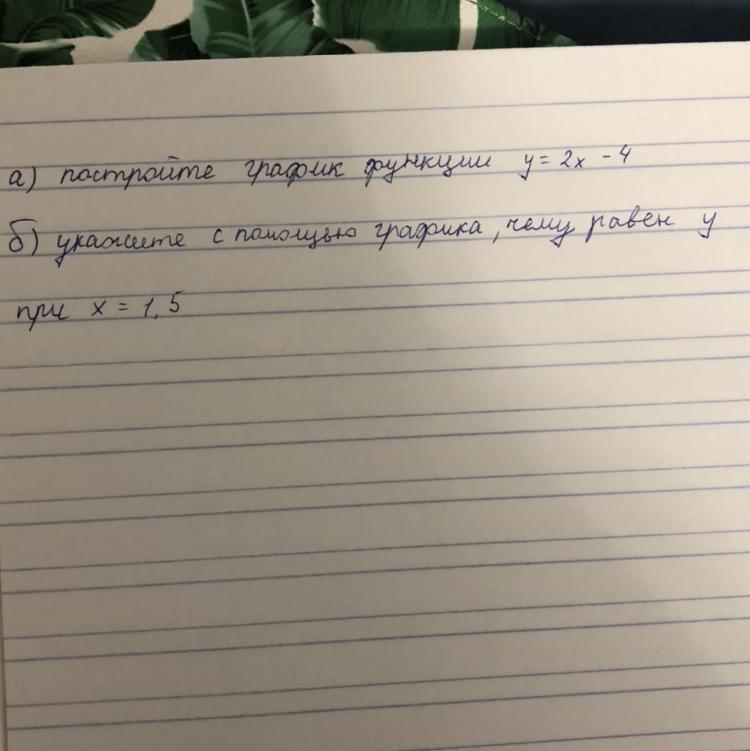 а) постройте график функции y = 2x - 4
б) укажите с помощью графика, чему равен y
при x = 1,5